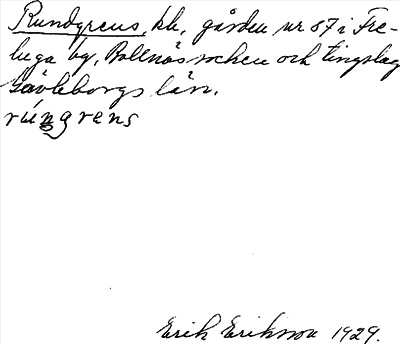 Rundgrens, kl., gården nr 57 i Fre-
luga by, Bollnäs socken och tingslag
Gävleborgs län.
rúngrens
Erik Eriksson 1929.